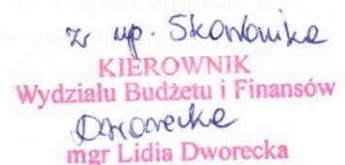 z up. Skarbnika
KIEROWNIK
Wydziału Budżetu i Finansów
Dworecka
mgr Lidia Dworecka